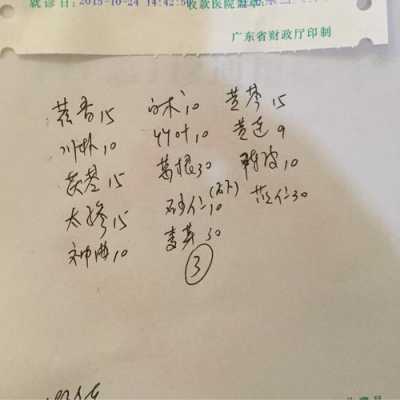 就诊日:2015-10-24 14:42:50 收款医院
广东省财政厅印制
藿香15 白术10 黄芩15
川朴10 竹叶10 黄连9
15 葛根30 陈皮10
太参15 砂仁10 (后下) 苡仁30
神曲10 麦芽30
③